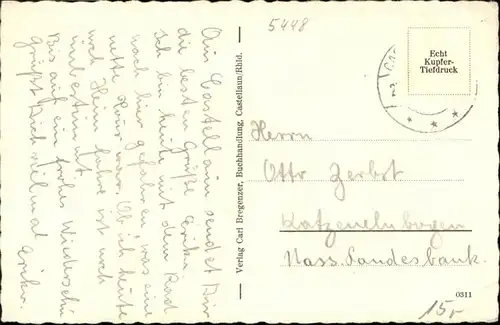 5448
Aus Castellaun sendet Dir
die besten Grüße Erika.
Ich bin heute mit dem Rad
nach hier gefahren, was eine
nette Tour war. Ob ich heute
noch Heim fahre ist noch
unbestimmt.
Bis auf ein frohes Wiedersehn
grüßt Dich vielmal Erika.
Verlag Carl Bregenzer, Buchhandlung, Castellaun/Rhld.
Echt
Kupfer-
Tiefdruck
Herrn
Otto Zerbst
Katzenelnbogen
Nass. Landesbank.
0311
15,-